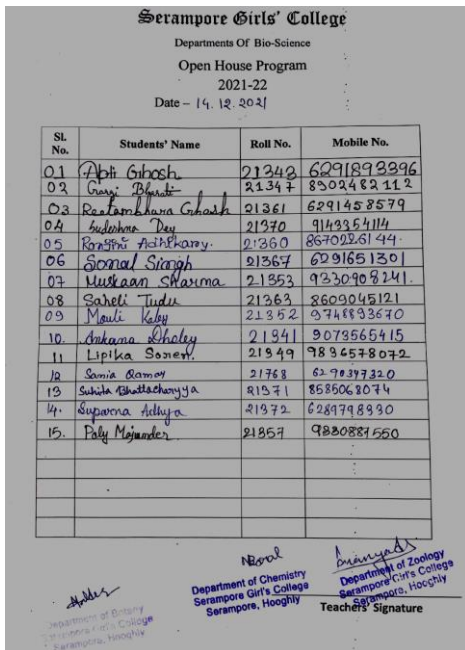 Serampore Girls' College
Departments Of Bio-Science
Open House Program
2021-22
Date – 14.12.2021
Sl. No. Students' Name Roll No. Mobile No.
01 Apti Ghosh 21343 6291893396
02 Gargi Bharati 21347 8302482112
03 Reetambhara Ghosh 21361 6291458579
04 Sudeshna Dey 21370 9143354114
05 Rongini Adhikary. 21360 8670226144.
06 Somal Singh 21367 6291651301
07 Muskaan Sharma 21353 9330908241.
08 Saheli Tudu 21363 8609045121
09 Mouli Koley 21352 9748893670
10. Ankana Dholey 21341 9073565415
11 Lipika Soren. 21349 9836578072
12 Sania Qamar 21768 6290397320
13 Suhita Bhattacharyya 21371 8585068074
14. Suparna Adhya 21372 6289798330
15. Paly Majumder 21357 9330887550
Department of Botany
Serampore Girl's College
Serampore, Hooghly
Department of Chemistry
Serampore Girl's College
Serampore, Hooghly
Department of Zoology
Serampore Girl's College
Serampore, Hooghly
Teachers' Signature